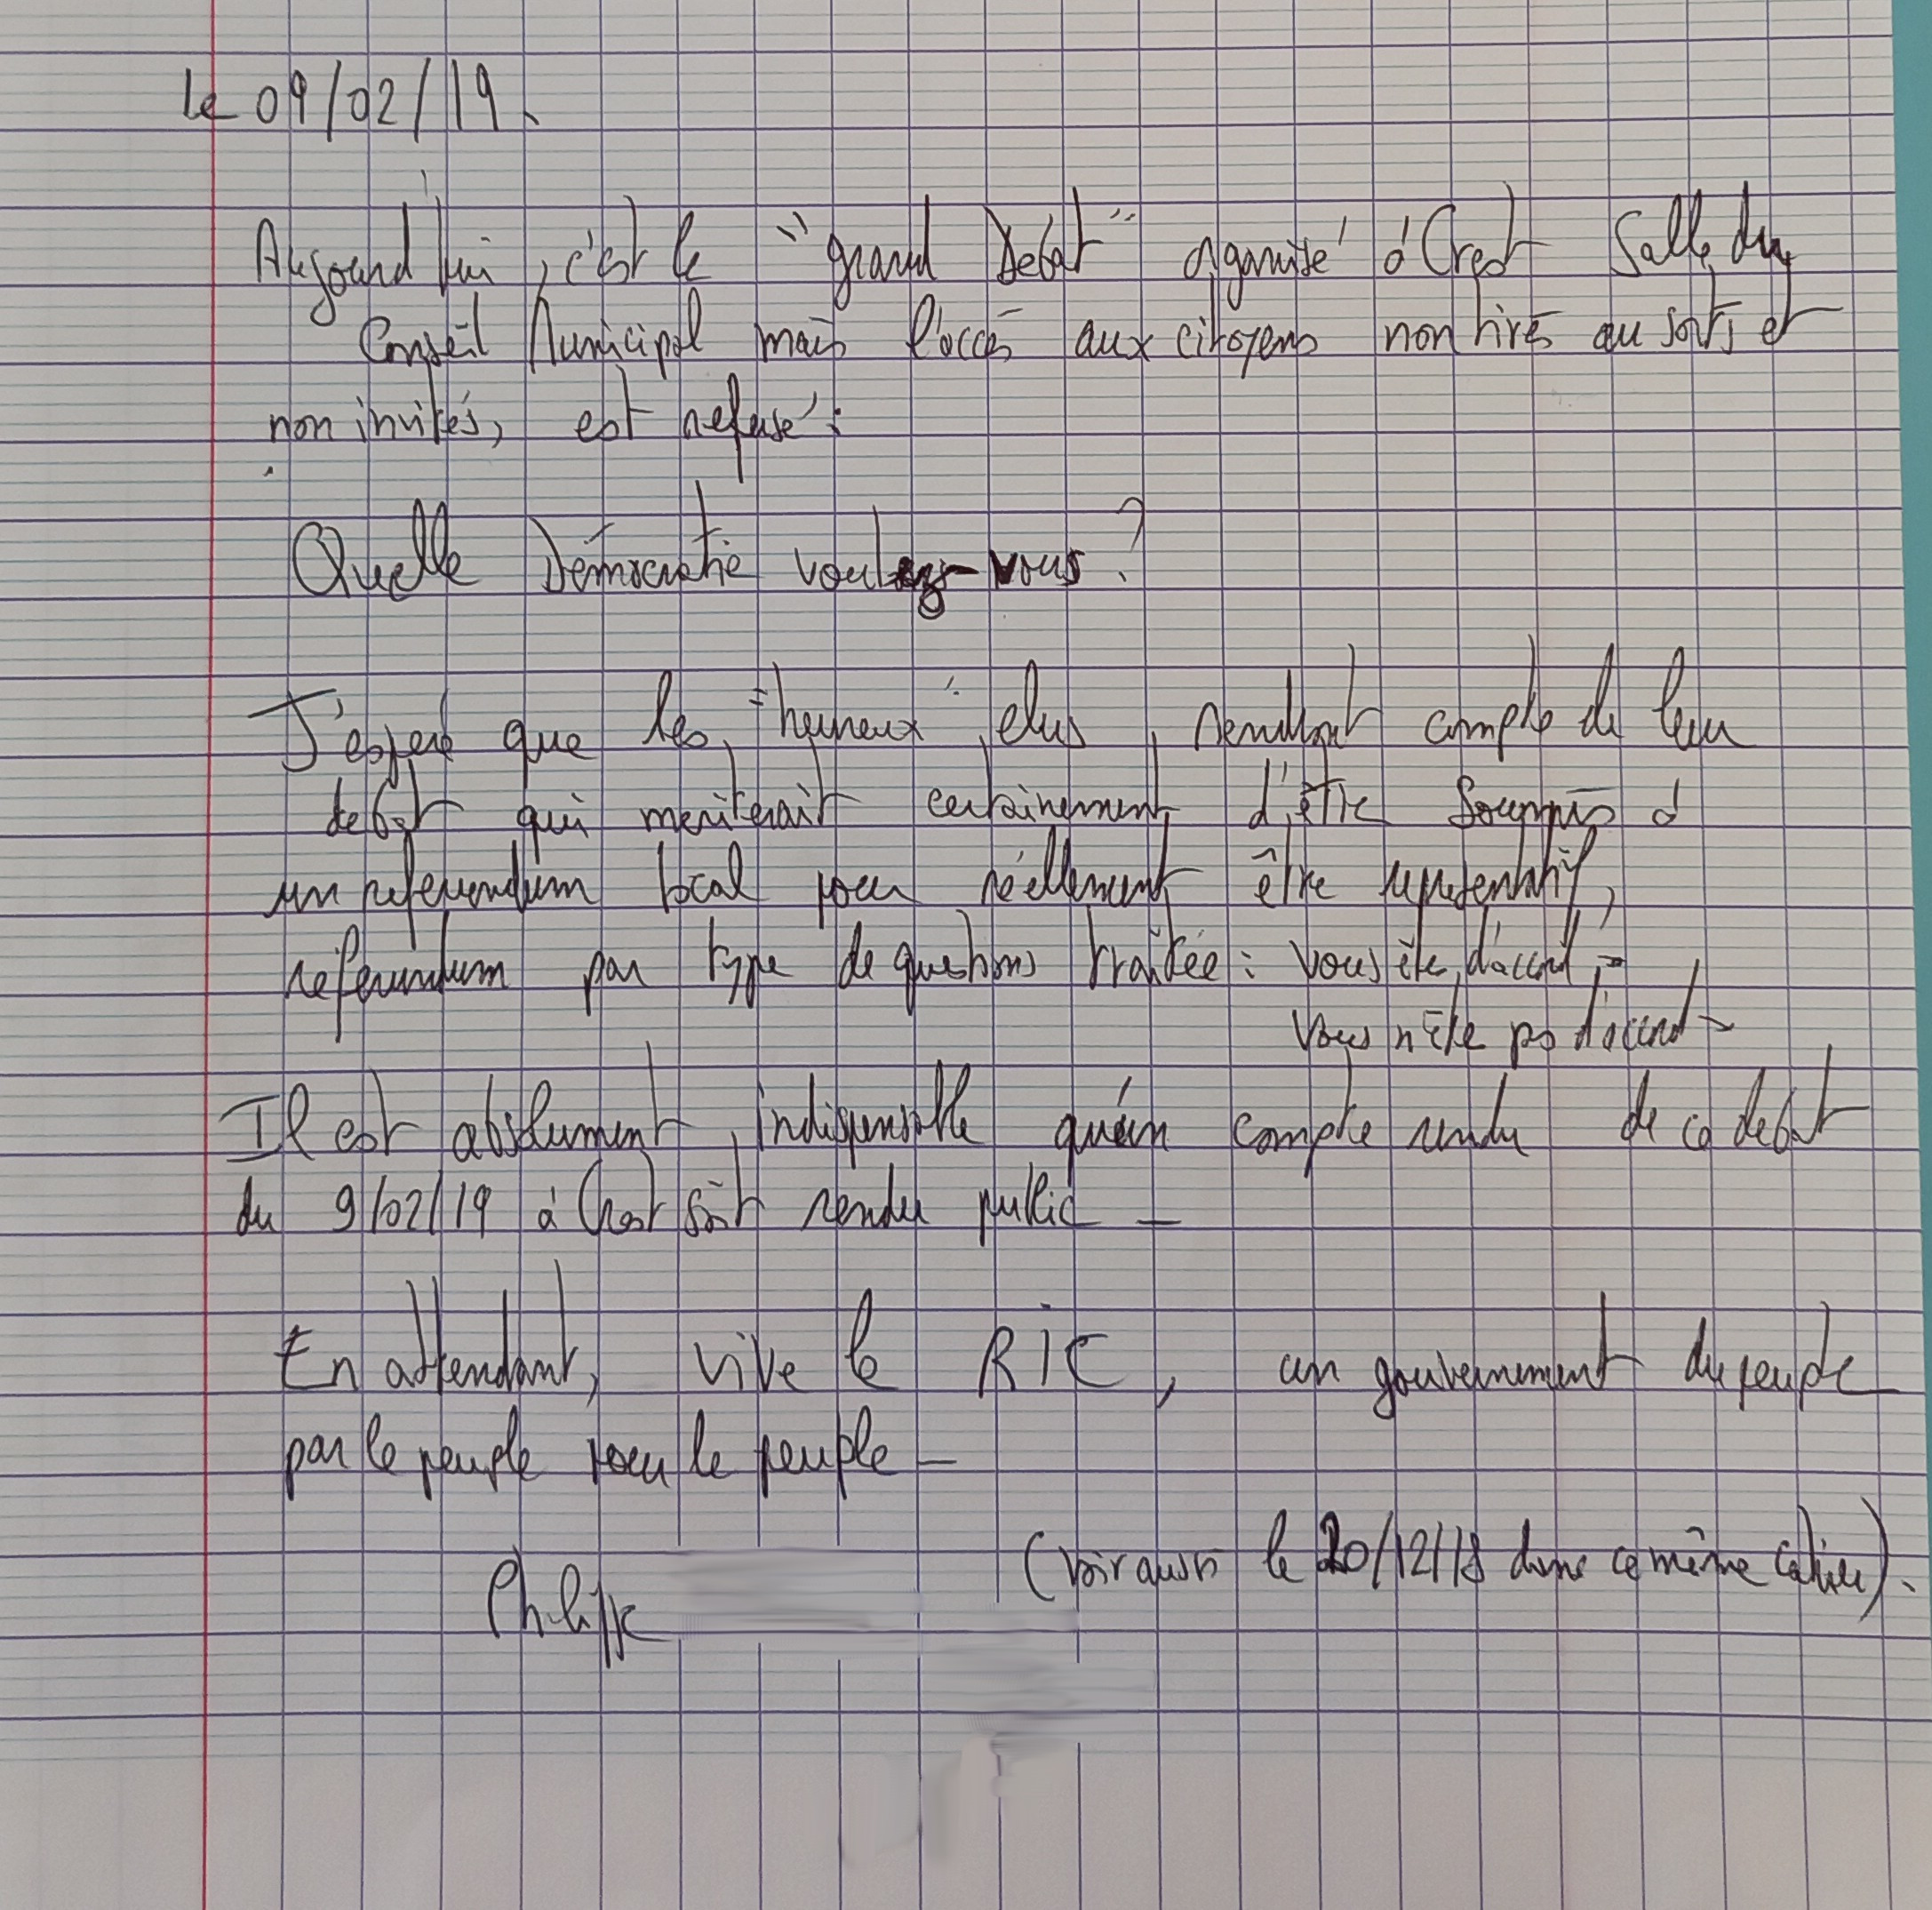 le 09/02/19.
Aujourd'hui, c'est le "grand Débat" organisé à Crest Salle du
Conseil Municipal mais l'accès aux citoyens non tirés au sorts et
non invités, est refusé :
Quelle Démocratie voulez-vous ?
J'espère que les "heureux" élus, rendront compte de leur
debat qui meriterait certainement d'être soumis à
un referendum local pour réellement être representatif,
référendum par type de questions traitée : Vous ête d'accord -
Vous n'ête pas d'accord -
Il est absolument indispensable qu'un compte rendu de ce debat
du 9/02/19 à Crest soit rendu public -
En attendant, vive le RIC, un gouvernement du peuple
par le peuple pour le peuple -
(Voir aussi le 20/12/18 dans ce même cahier).
Philippe